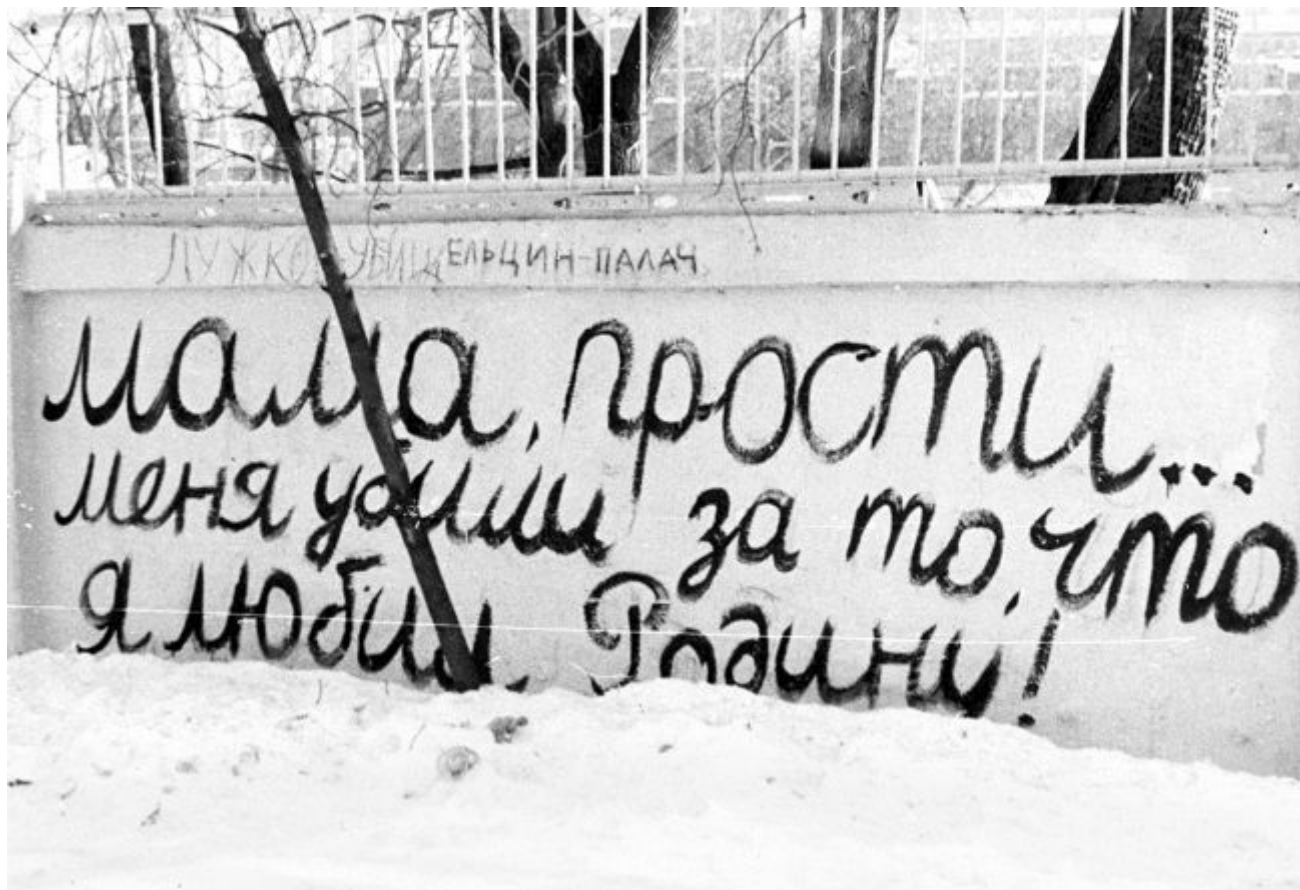 ЛУЖКО УБИЙЦ ЕЛЬЦИН-ПАЛАЧ
мама, прости...
меня убили за то, что
я любил Родину!